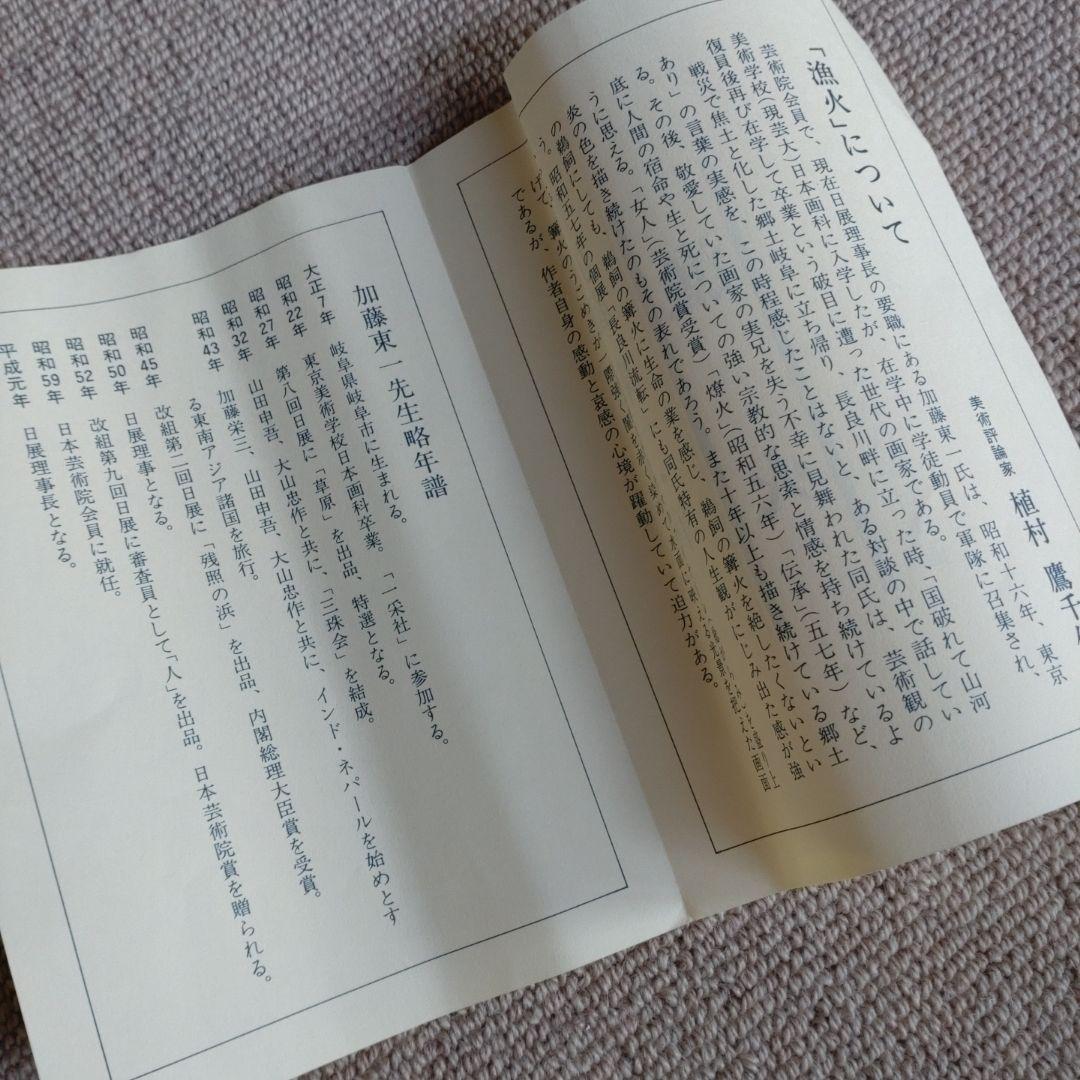 「漁火」について
美術評論家 植村 鷹千
芸術院会員で、現在日展理事長の要職にある加藤東一氏は、昭和十六年、東京
美術学校(現芸大)日本画科に入学したが、在学中に学徒動員で軍隊に召集され、
復員後再び在学して卒業という破目に遭った世代の画家である。
戦災で焦土と化した郷土岐阜に立ち帰り、長良川畔に立った時、「国破れて山河
あり」の言葉の実感を、この時程感じたことはないと、ある対談の中で話してい
る。その後、敬愛していた画家の実兄を失う不幸に見舞われた同氏は、芸術観の
底に人間の宿命や生と死についての強い宗教的な思索と情感を持ち続けているよ
うに思える。「女人」(芸術院賞受賞)「燎火」(昭和五六年)「伝承」(五七年)など、
炎の色を描き続けたのもその表れであろう。また十年以上も描き続けている郷土
の鵜飼にしても、鵜飼の篝火に生命の業を感じ、鵜飼の篝火を絶したくないとい
う。昭和五七年の個展「長良川流転」にも同氏特有の人生観がにじみ出た感が強
篝火のうごめきが
であるが、作者自身の感動と哀感の心境が躍動していて迫力がある。
加藤東一先生略年譜
大正7年 岐阜県岐阜市に生まれる。
昭和22年 東京美術学校日本画科卒業。「一栄社」に参加する。
昭和27年 第八回日展に「草原」を出品、特選となる。
昭和32年 山田申吾、大山忠作と共に、「三珠会」を結成。
昭和43年 加藤栄三、山田申吾、大山忠作と共に、インド・ネパールを始めとす
る東南アジア諸国を旅行。
昭和45年 改組第二回日展に「残照の浜」を出品、内閣総理大臣賞を受賞。
昭和50年 日展理事となる。
昭和52年 改組第九回日展に審査員として「人」を出品。日本芸術院賞を贈られる。
昭和59年 日本芸術院会員に就任。
平成元年 日展理事長となる。